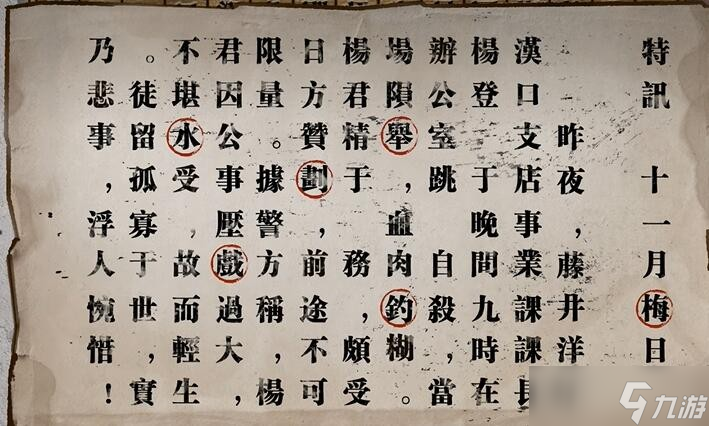 特訊 十一月梅日
昨夜，藤井洋
漢口支店事業課課長
楊登 于晚間九時在
辦公室跳 自殺，當
場隕舉，血肉釣糊。
楊君精于 務，頗受
日方贊劃，前途，不可
限量。據警方稱，楊
君因公事壓戲過大，
不堪水受，故而輕生
。徒留孤寡于世，實
乃悲事，浮人惋惜！
九游